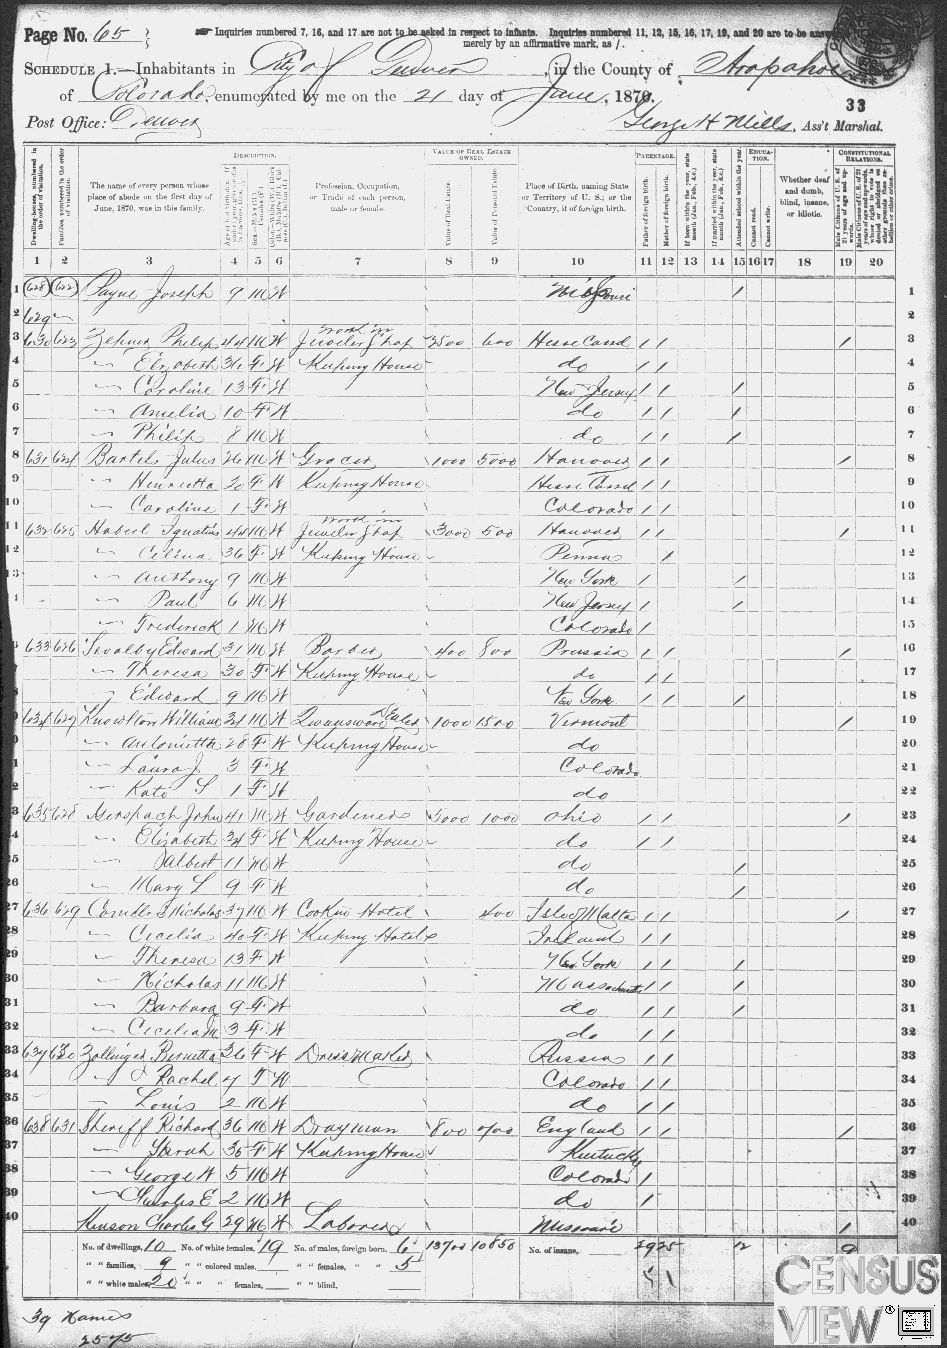 Page No. 65
Inquiries numbered 7, 16, and 17 are not to be asked in respect to infants. Inquiries numbered 11, 12, 15, 16, 17, 19, and 20 are to be answered
merely by an affirmative mark, as /.
SCHEDULE 1.—Inhabitants in City of Denver, in the County of Arapahoe
of Colorado, enumerated by me on the 21 day of June, 1870.
33
Post Office: Denver George H Mills, Ass't Marshal.
DESCRIPTION. VALUE OF REAL ESTATE OWNED. PARENTAGE. EDUCATION. CONSTITUTIONAL RELATIONS.
Dwelling-houses, numbered in the order of visitation.
Families, numbered in the order of visitation.
The name of every person whose place of abode on the first day of June, 1870, was in this family.
Profession, Occupation, or Trade of each person, male or female.
Value of Real Estate.
Value of Personal Estate.
Place of Birth, naming State or Territory of U. S.; or the Country, if of foreign birth.
Father of foreign birth.
Mother of foreign birth.
If born within the year, state month (Jan., Feb., &c.)
If married within the year, state month (Jan., Feb., &c.)
Attended school within the year.
Cannot read.
Cannot write.
Whether deaf and dumb, blind, insane, or idiotic.
1 2 3 4 5 6 7 8 9 10 11 12 13 14 15 16 17 18 19 20
1 628 622 Payne Joseph 9 M W Missouri / 1
2 629 2
3 630 623 Philip 44 M W work in Jeweler Shop 2500 600 Hesse Cassel / / / 3
4 Elizabeth 36 F W Keeping House do / / 4
5 Caroline 13 F W New Jersey / / / 5
6 Amelia 10 F W do / / / 6
7 Philip 8 M W do / / / 7
8 631 624 Bartels Julus 26 M W Grocer 1000 5000 Hanover / / / 8
9 Henrietta 20 F W Keeping House Hesse Cassel / / 9
10 Caroline 1 F W Colorado / / 10
11 632 625 Haberl Ignatius 44 M W work in Jeweler Shop 3000 500 Hanover / / / 11
12 Celina 36 F W Keeping House Penna / 12
13 Anthony 9 M W New York / / 13
Paul 6 M W New Jersey / / 14
Frederick 1 M W Colorado / 15
633 626 Edward 31 M W Barber 400 800 Prussia / / / 16
Theresa 30 F W Keeping House do / / 17
Edward 9 M W New York / / / 18
634 627 Knowlton William 34 M W Queensware Dealer 1000 1500 Vermont / 19
Antonietta 28 F W Keeping House do 20
Laura J 3 F W Colorado 21
Kate L 1 F W do 22
635 628 Merspach John 41 M W Gardener 5000 1000 Ohio / / / 23
Elizabeth 34 F W Keeping House do / / 24
25 Albert 11 M W do / 25
26 Mary L 9 F W do / 26
27 636 629 Nicholas 37 M W Cook in Hotel 400 Isle of Malta / / / 27
28 Cecelia 40 F W Keeping Hotel Ireland / / 28
29 Theresa 13 F W New York / / / 29
30 Nicholas 11 M W Massachusetts / / / 30
31 Barbara 9 F W do / / / 31
32 Cecelia M 3 F W do / / 32
33 637 630 Zollinger Bernetta 26 F W Dress Maker Russia / / 33
34 Rachel 4 F W Colorado / / 34
35 Louis 2 M W do / / 35
36 638 631 Sheriff Richard 36 M W Drayman 800 700 England / / / 36
37 Sarah 36 F W Keeping House Kentucky 37
38 George W 5 M W Colorado / 38
39 Charles E 2 M W do / 39
40 Henson Charles G 29 M W Laborer Missouri / 40
No. of dwellings, 10 No. of white females, 19 No. of males, foreign born, 6 13700 10850 No. of insane, 29 25 12 9
" " families, 9 " " colored males, " " females, " " 5
" " white males, 20 " " " females, " " blind,
39 Names
2575
CENSUS
VIEW